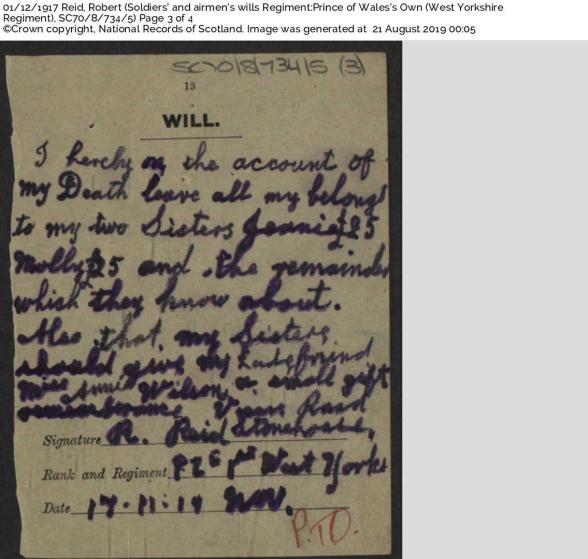 01/12/1917 Reid, Robert (Soldiers' and airmen's wills Regiment:Prince of Wales's Own (West Yorkshire
Regiment), SC70/8/734/5) Page 3 of 4
©Crown copyright, National Records of Scotland. Image was generated at 21 August 2019 00:05
SC70/8/734/5 (3)
13
WILL.
I hereby on the account of
my Death leave all my belong
to my two Sisters Jeanie £25
Molly £25 and the remainder
which they know about.
Also that my Sisters
should give my Lady friend
Miss Annie Wilson, a small gift
remembrance Road
Signature R. Reid Stonehouse,
Rank and Regiment Pte 1st West Yorks
Date 17.11.17 Nov.
P.T.O.